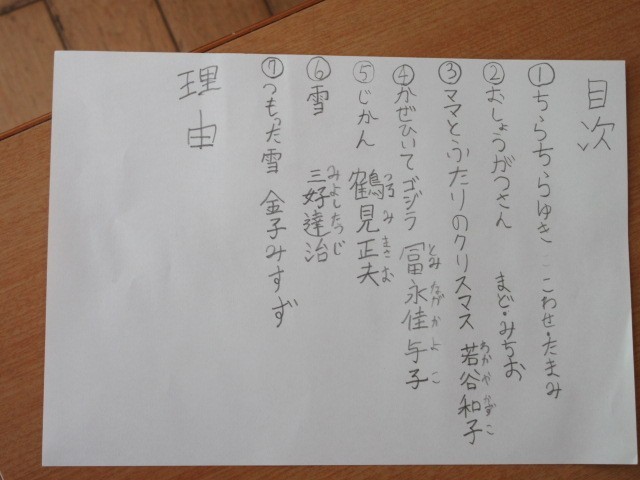 目次
①ちらちらゆき こわせ・たまみ
②おしょうがつさん まど・みちお
③ママとふたりのクリスマス 若谷和子
わかやかずこ
④かぜひいてゴジラ 冨永佳与子
とみながかよこ
⑤じかん 鶴見正夫
つるみまさお
⑥雪 三好達治
みよしたつじ
⑦つもった雪 金子みすず
理由